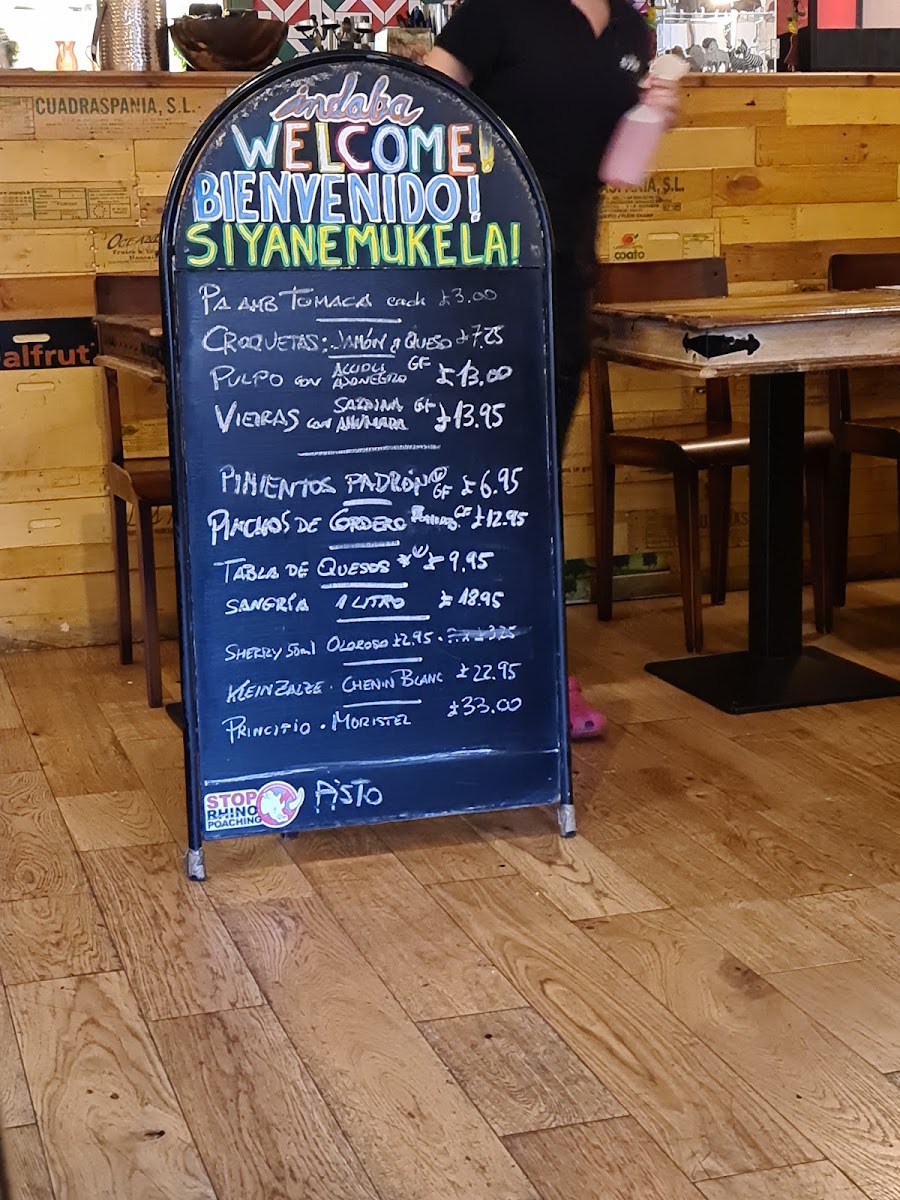 CUADRASPANIA, S.L.
indaba
WELCOME!
BIENVENIDO!
SIYANEMUKELA!
PA AMB TOMACA each £3.00
CROQUETAS: JAMÓN Y QUESO £7.25
PULPO con ALLIOLI AJONEGRO GF £13.00
VIEIRAS con SARDINA AHUMADA GF £13.95
PIMIENTOS PADRÓN V GF £6.95
PINCHOS DE CORDERO GF £12.95
TABLA DE QUESOS * V £9.95
SANGRÍA 1 LITRO £18.95
SHERRY 50ml OLOROSO £2.95 ·
KLEIN ZALZE · CHENIN BLANC £22.95
PRINCIPIO · MORISTEL £33.00
STOP
RHINO
POACHING
PISTO
alfrut
SPANIA, S.L.
coato